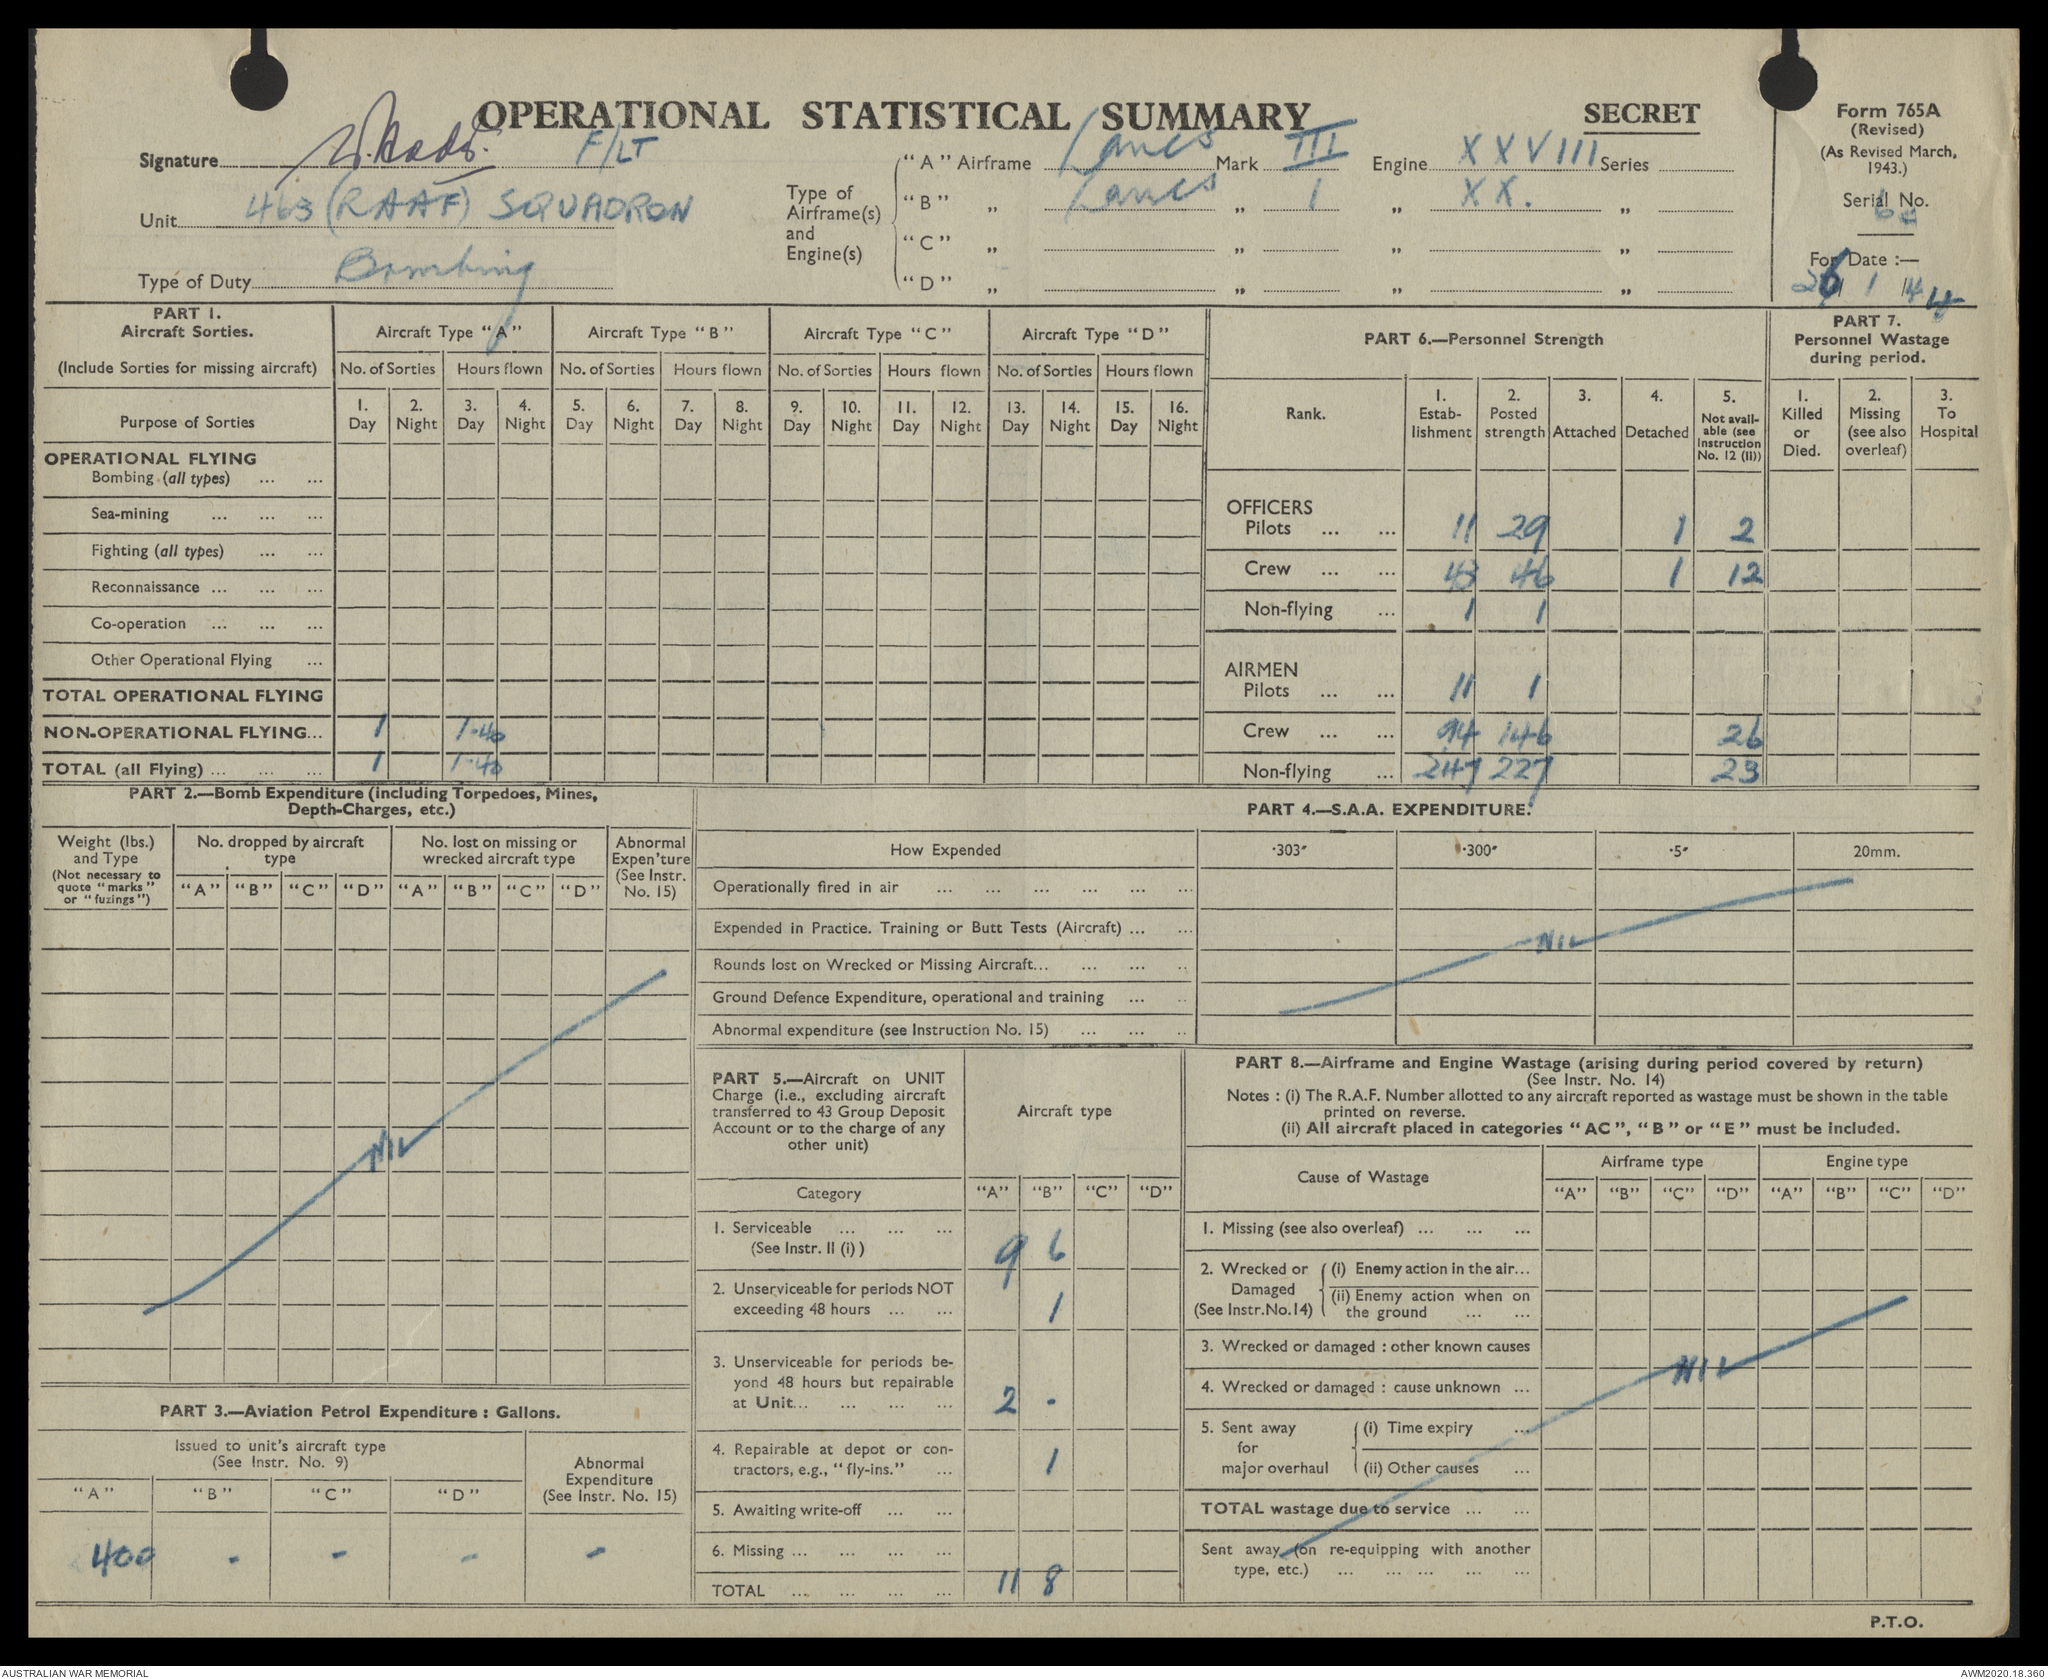 OPERATIONAL STATISTICAL SUMMARY
SECRET
Form 765A
(Revised)
(As Revised March,
1943.)
Serial No.
For Date :—
26/1/44
Signature F/LT
Unit 463 (RAAF) SQUADRON
Type of Duty Bombing
Type of
Airframe(s)
and
Engine(s)
"A" Airframe Lancs Mark III Engine XXVIII Series
"B" „ Lancs „ 1 „ XX. „
"C" „ „ „ „
"D" „ „ „ „
PART 1.
Aircraft Sorties.
(Include Sorties for missing aircraft)
Aircraft Type "A" Aircraft Type "B" Aircraft Type "C" Aircraft Type "D"
No. of Sorties Hours flown No. of Sorties Hours flown No. of Sorties Hours flown No. of Sorties Hours flown
Purpose of Sorties
1. Day 2. Night 3. Day 4. Night 5. Day 6. Night 7. Day 8. Night 9. Day 10. Night 11. Day 12. Night 13. Day 14. Night 15. Day 16. Night
OPERATIONAL FLYING
Bombing (all types) ... ...
Sea-mining ... ... ...
Fighting (all types) ... ...
Reconnaissance ... ... ...
Co-operation ... ... ...
Other Operational Flying ...
TOTAL OPERATIONAL FLYING
NON-OPERATIONAL FLYING... 1 1·40
TOTAL (all Flying) ... ... ... 1 1·40
PART 6.—Personnel Strength
Rank.
1. Estab-lishment
2. Posted strength
3. Attached
4. Detached
5. Not avail-able (see Instruction No. 12 (II))
OFFICERS
Pilots ... ... 11 29 1 2
Crew ... ... 43 46 1 12
Non-flying ... 1 1
AIRMEN
Pilots ... ... 11 1
Crew ... ... 94 146 26
Non-flying ... 247 227 23
PART 7.
Personnel Wastage
during period.
1. Killed or Died.
2. Missing (see also overleaf)
3. To Hospital
PART 2.—Bomb Expenditure (including Torpedoes, Mines,
Depth-Charges, etc.)
Weight (lbs.)
and Type
(Not necessary to
quote "marks"
or "fuzings")
No. dropped by aircraft
type
No. lost on missing or
wrecked aircraft type
Abnormal
Expen'ture
(See Instr.
No. 15)
"A" "B" "C" "D" "A" "B" "C" "D"
NIL
PART 3.—Aviation Petrol Expenditure : Gallons.
Issued to unit's aircraft type
(See Instr. No. 9)
Abnormal
Expenditure
(See Instr. No. 15)
"A" "B" "C" "D"
400 - - - -
PART 4.—S.A.A. EXPENDITURE.
How Expended ·303" ·300" ·5" 20mm.
Operationally fired in air ... ... ... ... ... ...
Expended in Practice. Training or Butt Tests (Aircraft) ... ...
Rounds lost on Wrecked or Missing Aircraft... ... ... ..
Ground Defence Expenditure, operational and training ... ..
Abnormal expenditure (see Instruction No. 15) ... ... ..
NIL
PART 5.—Aircraft on UNIT
Charge (i.e., excluding aircraft
transferred to 43 Group Deposit
Account or to the charge of any
other unit)
Aircraft type
Category "A" "B" "C" "D"
1. Serviceable ... ... ...
(See Instr. II (i) ) 9 6
2. Unserviceable for periods NOT
exceeding 48 hours ... ... 1
3. Unserviceable for periods be-
yond 48 hours but repairable
at Unit... ... ... ... 2 -
4. Repairable at depot or con-
tractors, e.g., "fly-ins." ... 1
5. Awaiting write-off ... ...
6. Missing ... ... ... ...
TOTAL ... ... ... ... 11 8
PART 8.—Airframe and Engine Wastage (arising during period covered by return)
(See Instr. No. 14)
Notes : (i) The R.A.F. Number allotted to any aircraft reported as wastage must be shown in the table
printed on reverse.
(ii) All aircraft placed in categories "AC", "B" or "E" must be included.
Cause of Wastage
Airframe type Engine type
"A" "B" "C" "D" "A" "B" "C" "D"
1. Missing (see also overleaf) ... ... ...
2. Wrecked or
Damaged
(See Instr.No.14)
(i) Enemy action in the air...
(ii) Enemy action when on
the ground ... ...
3. Wrecked or damaged : other known causes
4. Wrecked or damaged : cause unknown ...
5. Sent away
for
major overhaul
(i) Time expiry ...
(ii) Other causes ...
TOTAL wastage due to service ... ...
Sent away (on re-equipping with another
type, etc.) ... ... ... ... ...
NIL
P.T.O.
AUSTRALIAN WAR MEMORIAL
AWM2020.18.360